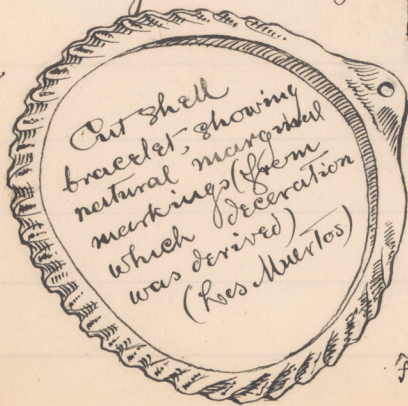 Cut shell
bracelet, showing
natural marginal
markings (from
which decoration
was derived)
(Los Muertos)